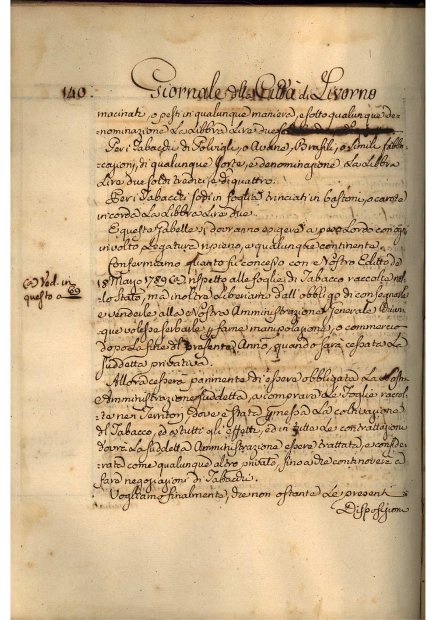 140. Giornale della Città di Livorno
macinati, o pesti in qualunque maniera, e sotto qualunque de-
nominazione La Libbra Lire due
Per i Tabacchi di Polviglj, o Avane, Brasili, o simili fabbri-
cazioni, di qualunque Sorte, e denominazione La Libbra
Lire due soldi tredici, e di quattro.
Per i Tabacchi sodi in foglia trinciati in bastoni, o carote
in corda La Libbra Lire due.
E queste Gabelle si dovranno esigere a peso Lordo con ogni
involto Legatura ripieno, e qualunque continente.
Confermiamo quanto fu concesso con el Nostro Editto de
18 Mayo 1789 (a) rispetto alle foglie di Tabacco raccolte nel-
lo Stato, ma inoltre Liberiamo dall'obbligo di consegnarle
e venderle alla Nostra Amministrazione Generale chiun-
que volesse serbarle, e farne manipolazione, o commercio
dopo La fine del presente Anno, quando sarà cessata La
suddetta privativa.
Allora cesserà parimente di essere obbligata La Nostra
Amministrazione suddetta, a comprare Le foglie raccol-
te nei Territori dove è stata permessa La coltivazione
del Tabacco, ed a tutti gli effetti, ed in tutte Le contrattazioni
dovrà La suddetta Amministrazione essere trattata, e conside-
rata come qualunque altro privato, fino a che continoverà a
fare negoziazioni di Tabacchi.
Vogliamo finalmente, che non ostante Le presenti
Disposizioni
(a) Ved. in
questo a 69